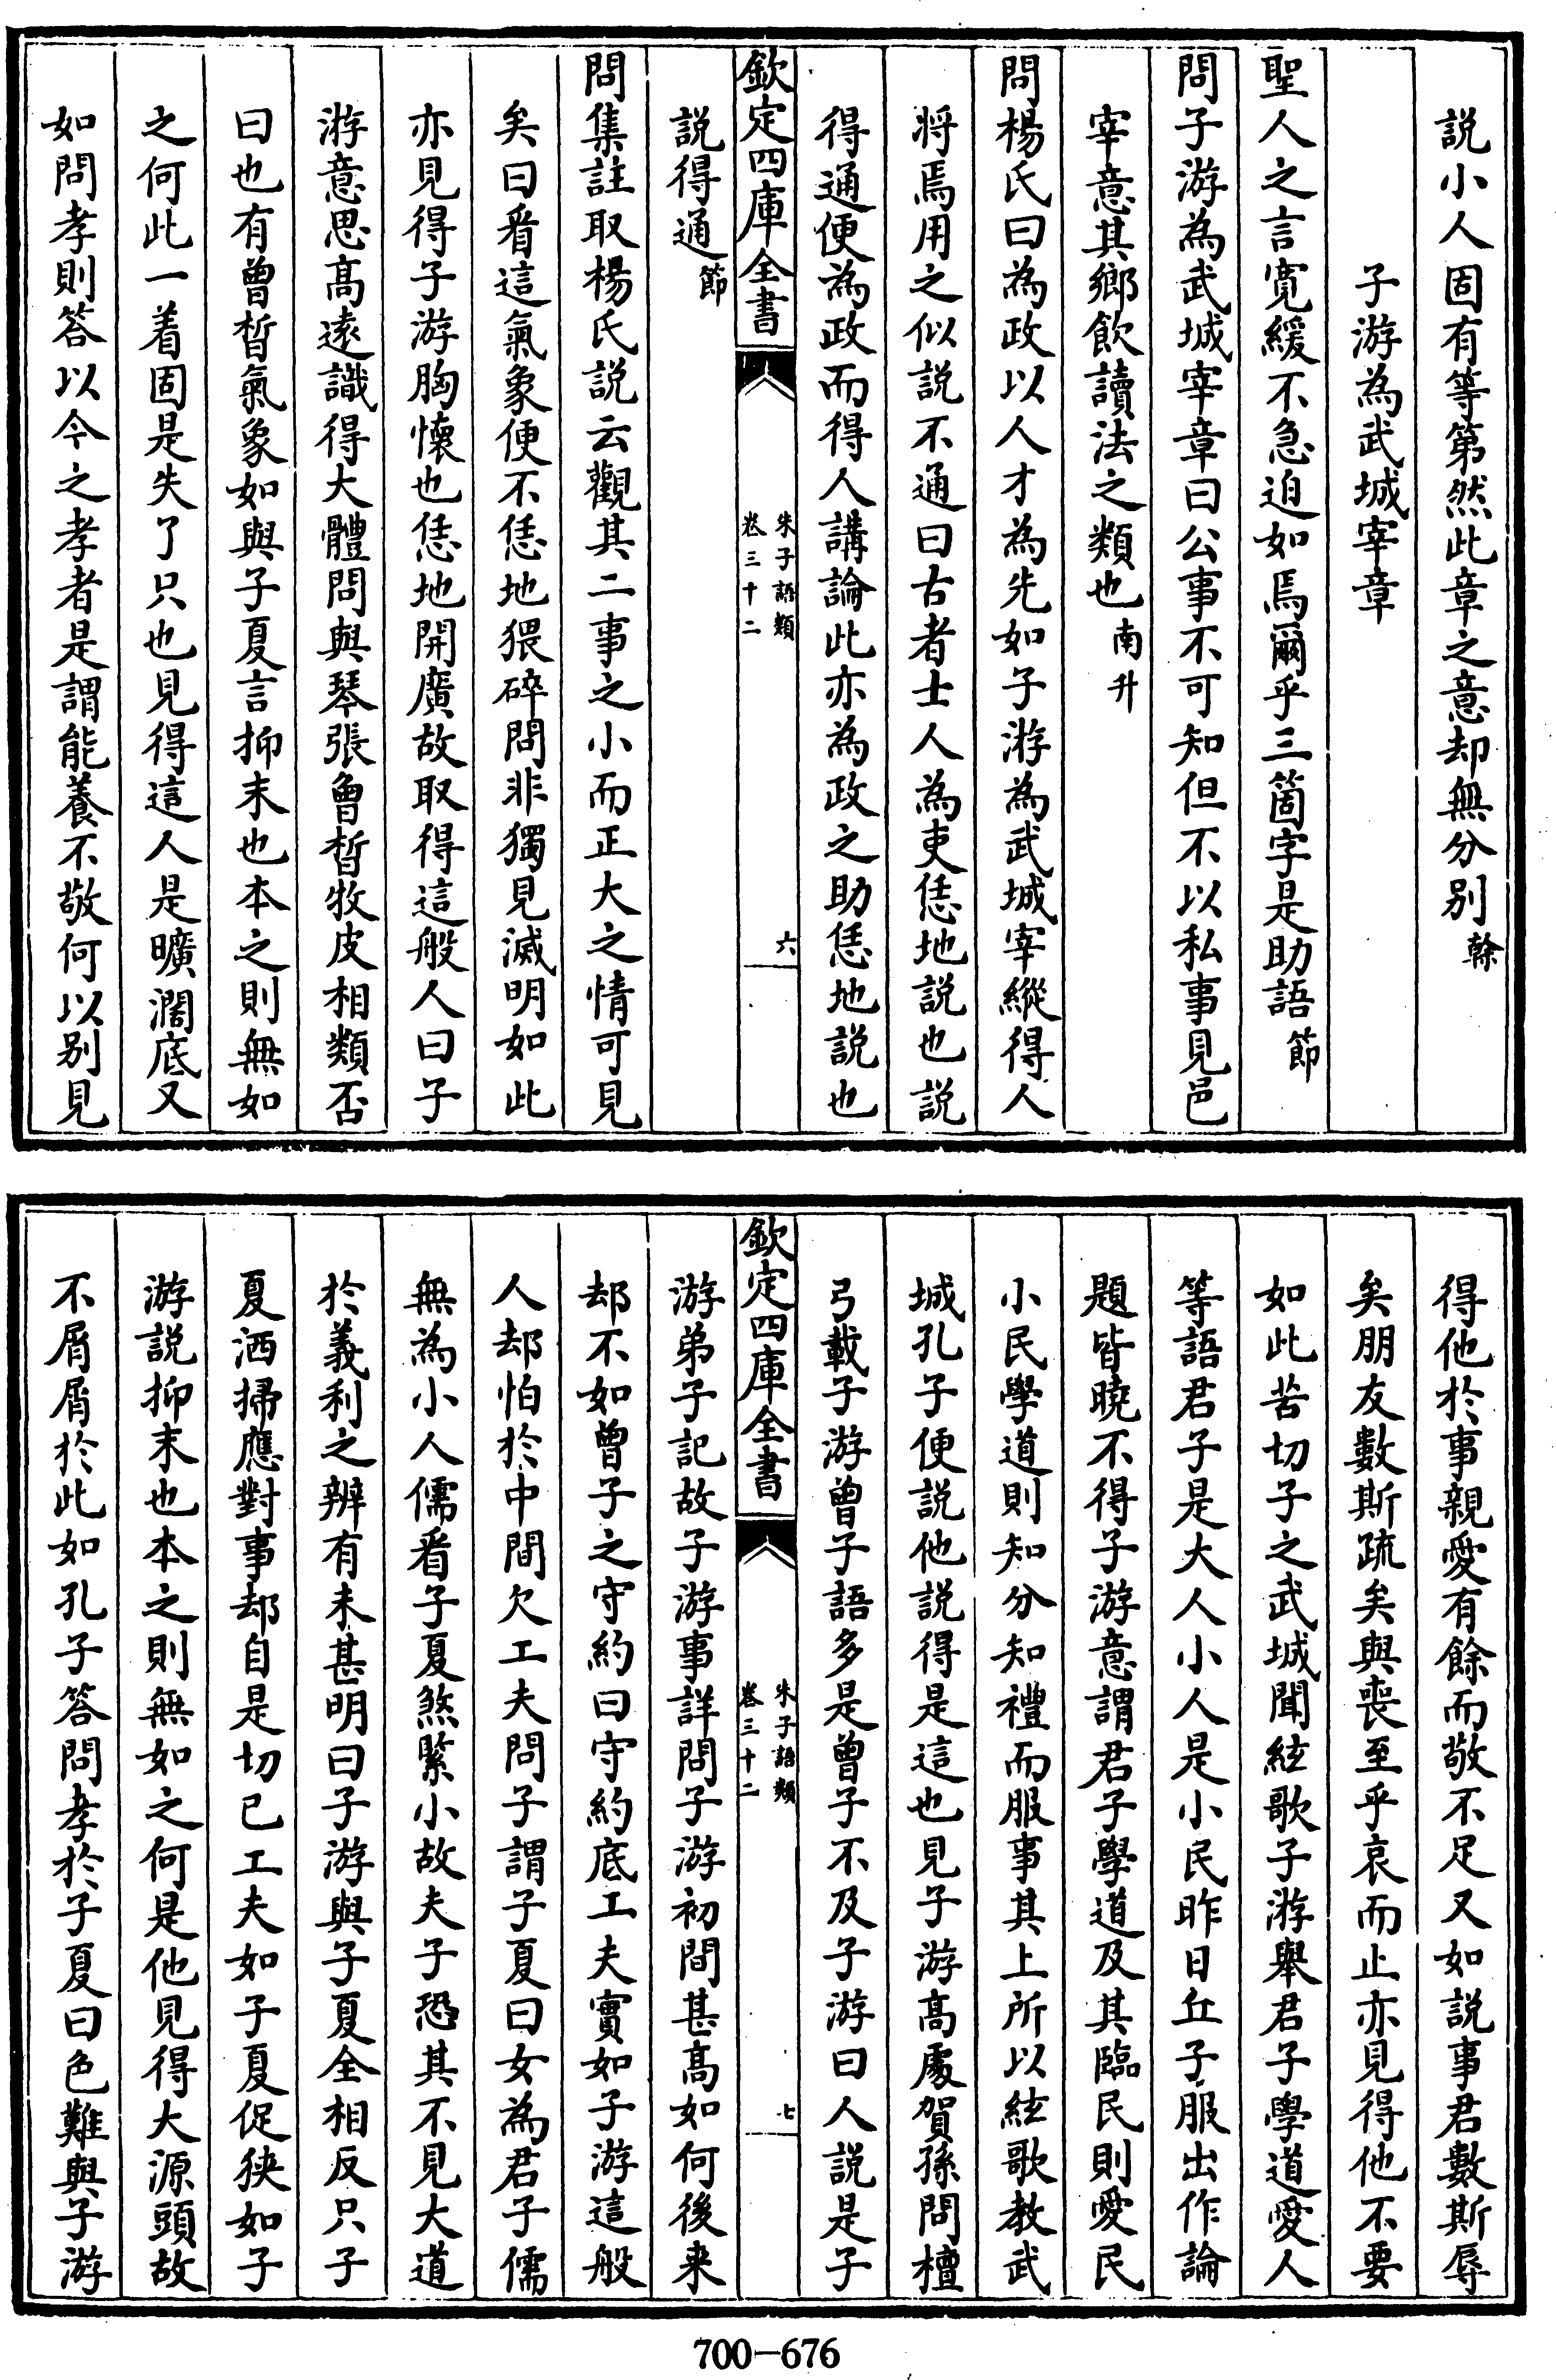 說小人固有等第然此章之意却無分别榦
子游為武城宰章
聖人之言寛緩不急迫如焉爾乎三箇字是助語節
問子游為武城宰章曰公事不可知但不以私事見邑
宰意其鄉飲讀法之類也南升
問楊氏曰為政以人才為先如子游為武城宰縱得人
将焉用之似説不通曰古者士人為吏恁地説也説
得通便為政而得人講論此亦為政之助恁地説也
說得通節
欽定四庫全書
朱子語類
卷三十二
六
問集註取楊氏說云觀其二事之小而正大之情可見
矣曰看這氣象便不恁地猥碎問非獨見滅明如此
亦見得子游胸懐也恁地開廣故取得這般人曰子
游意思髙遠識得大體問與琴張曾晳牧皮相類否
曰也有曾晳氣象如與子夏言抑末也本之則無如
之何此一着固是失了只也見得這人是曠濶底又
如問孝則答以今之孝者是謂能養不敬何以别見
得他於事親愛有餘而敬不足又如說事君數斯辱
矣朋友數斯疏矣與喪至乎哀而止亦見得他不要
如此苦切子之武城聞絃歌子游舉君子學道愛人
等語君子是大人小人是小民昨日丘子服出作論
題皆曉不得子游意謂君子學道及其臨民則愛民
小民學道則知分知禮而服事其上所以絃歌教武
城孔子便說他說得是這也見子游髙處賀孫問檀
弓載子游曾子語多是曾子不及子游曰人說是子
欽定四庫全書
朱子語類
卷三十二
七
游弟子記故子游事詳問子游初間甚髙如何後来
却不如曾子之守約曰守約底工夫實如子游這般
人却怕於中間欠工夫問子謂子夏曰女為君子儒
無為小人儒看子夏煞緊小故夫子恐其不見大道
於義利之辨有未甚明曰子游與子夏全相反只子
夏洒掃應對事却自是切已工夫如子夏促狹如子
游說抑末也本之則無如之何是他見得大源頭故
不屑屑於此如孔子答問孝於子夏曰色難與子游
700-676